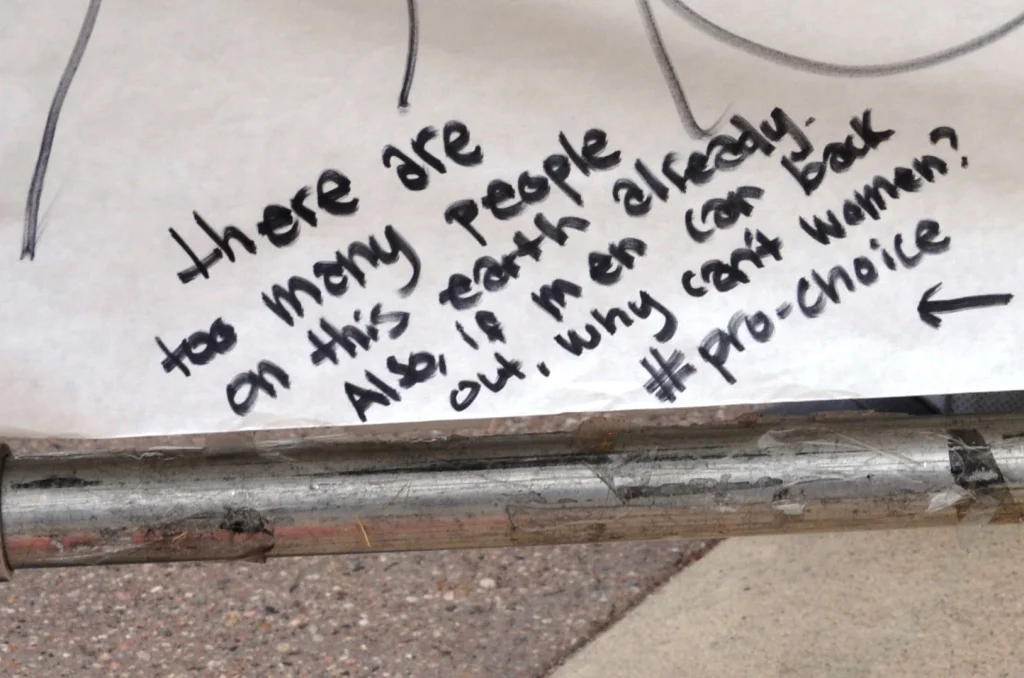 there are
too many people
on this earth already.
Also, if men can back
out, why can't women?
#pro-choice